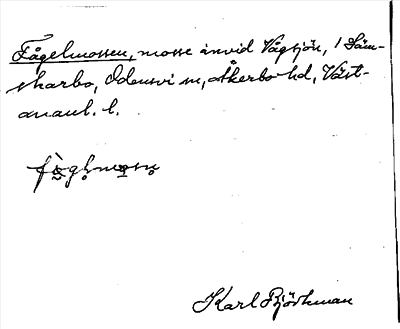 Fågelmossen, mosse invid Vågsjön, 1 Säm-
skarbo, Odensvi sn, Åkerbo hd, Väst-
manl. l.
Karl Björkman